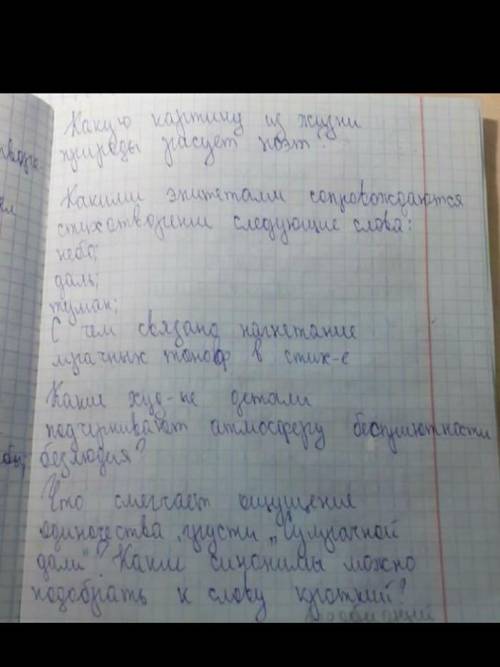 Какую картину из жизни
природы рисует поэт.
Какими эпитетами сопровождаются
стихотворении следующие слова:
небо;
даль;
туман;
С чем связано нагнетание
мрачных тонов в стих-е
Какие худ-не детали
подчеркивают атмосферу бесприютности
безлюдия?
Что смягчает ощущения
одиночества, грусти „в мрачной
дали" Какие синонимы можно
подобрать к слову кроткий?